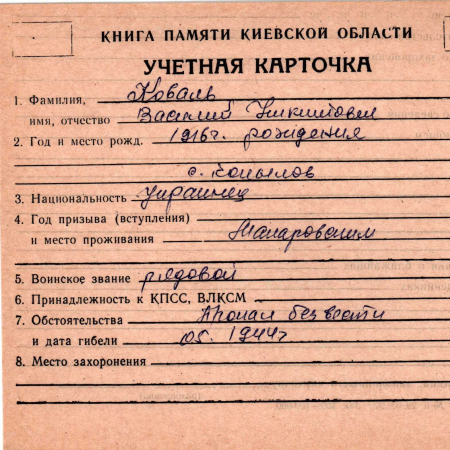 КНИГА ПАМЯТИ КИЕВСКОЙ ОБЛАСТИ
УЧЕТНАЯ КАРТОЧКА
1. Фамилия, Коваль
имя, отчество Василий Никитович
2. Год и место рожд. 1916г. рождения
с. Копылов
3. Национальность Украинец
4. Год призыва (вступления)
и место проживания Макаровским
5. Воинское звание рядовой
6. Принадлежность к КПСС, ВЛКСМ
7. Обстоятельства пропал без вести
и дата гибели 05. 1944г
8. Место захоронения